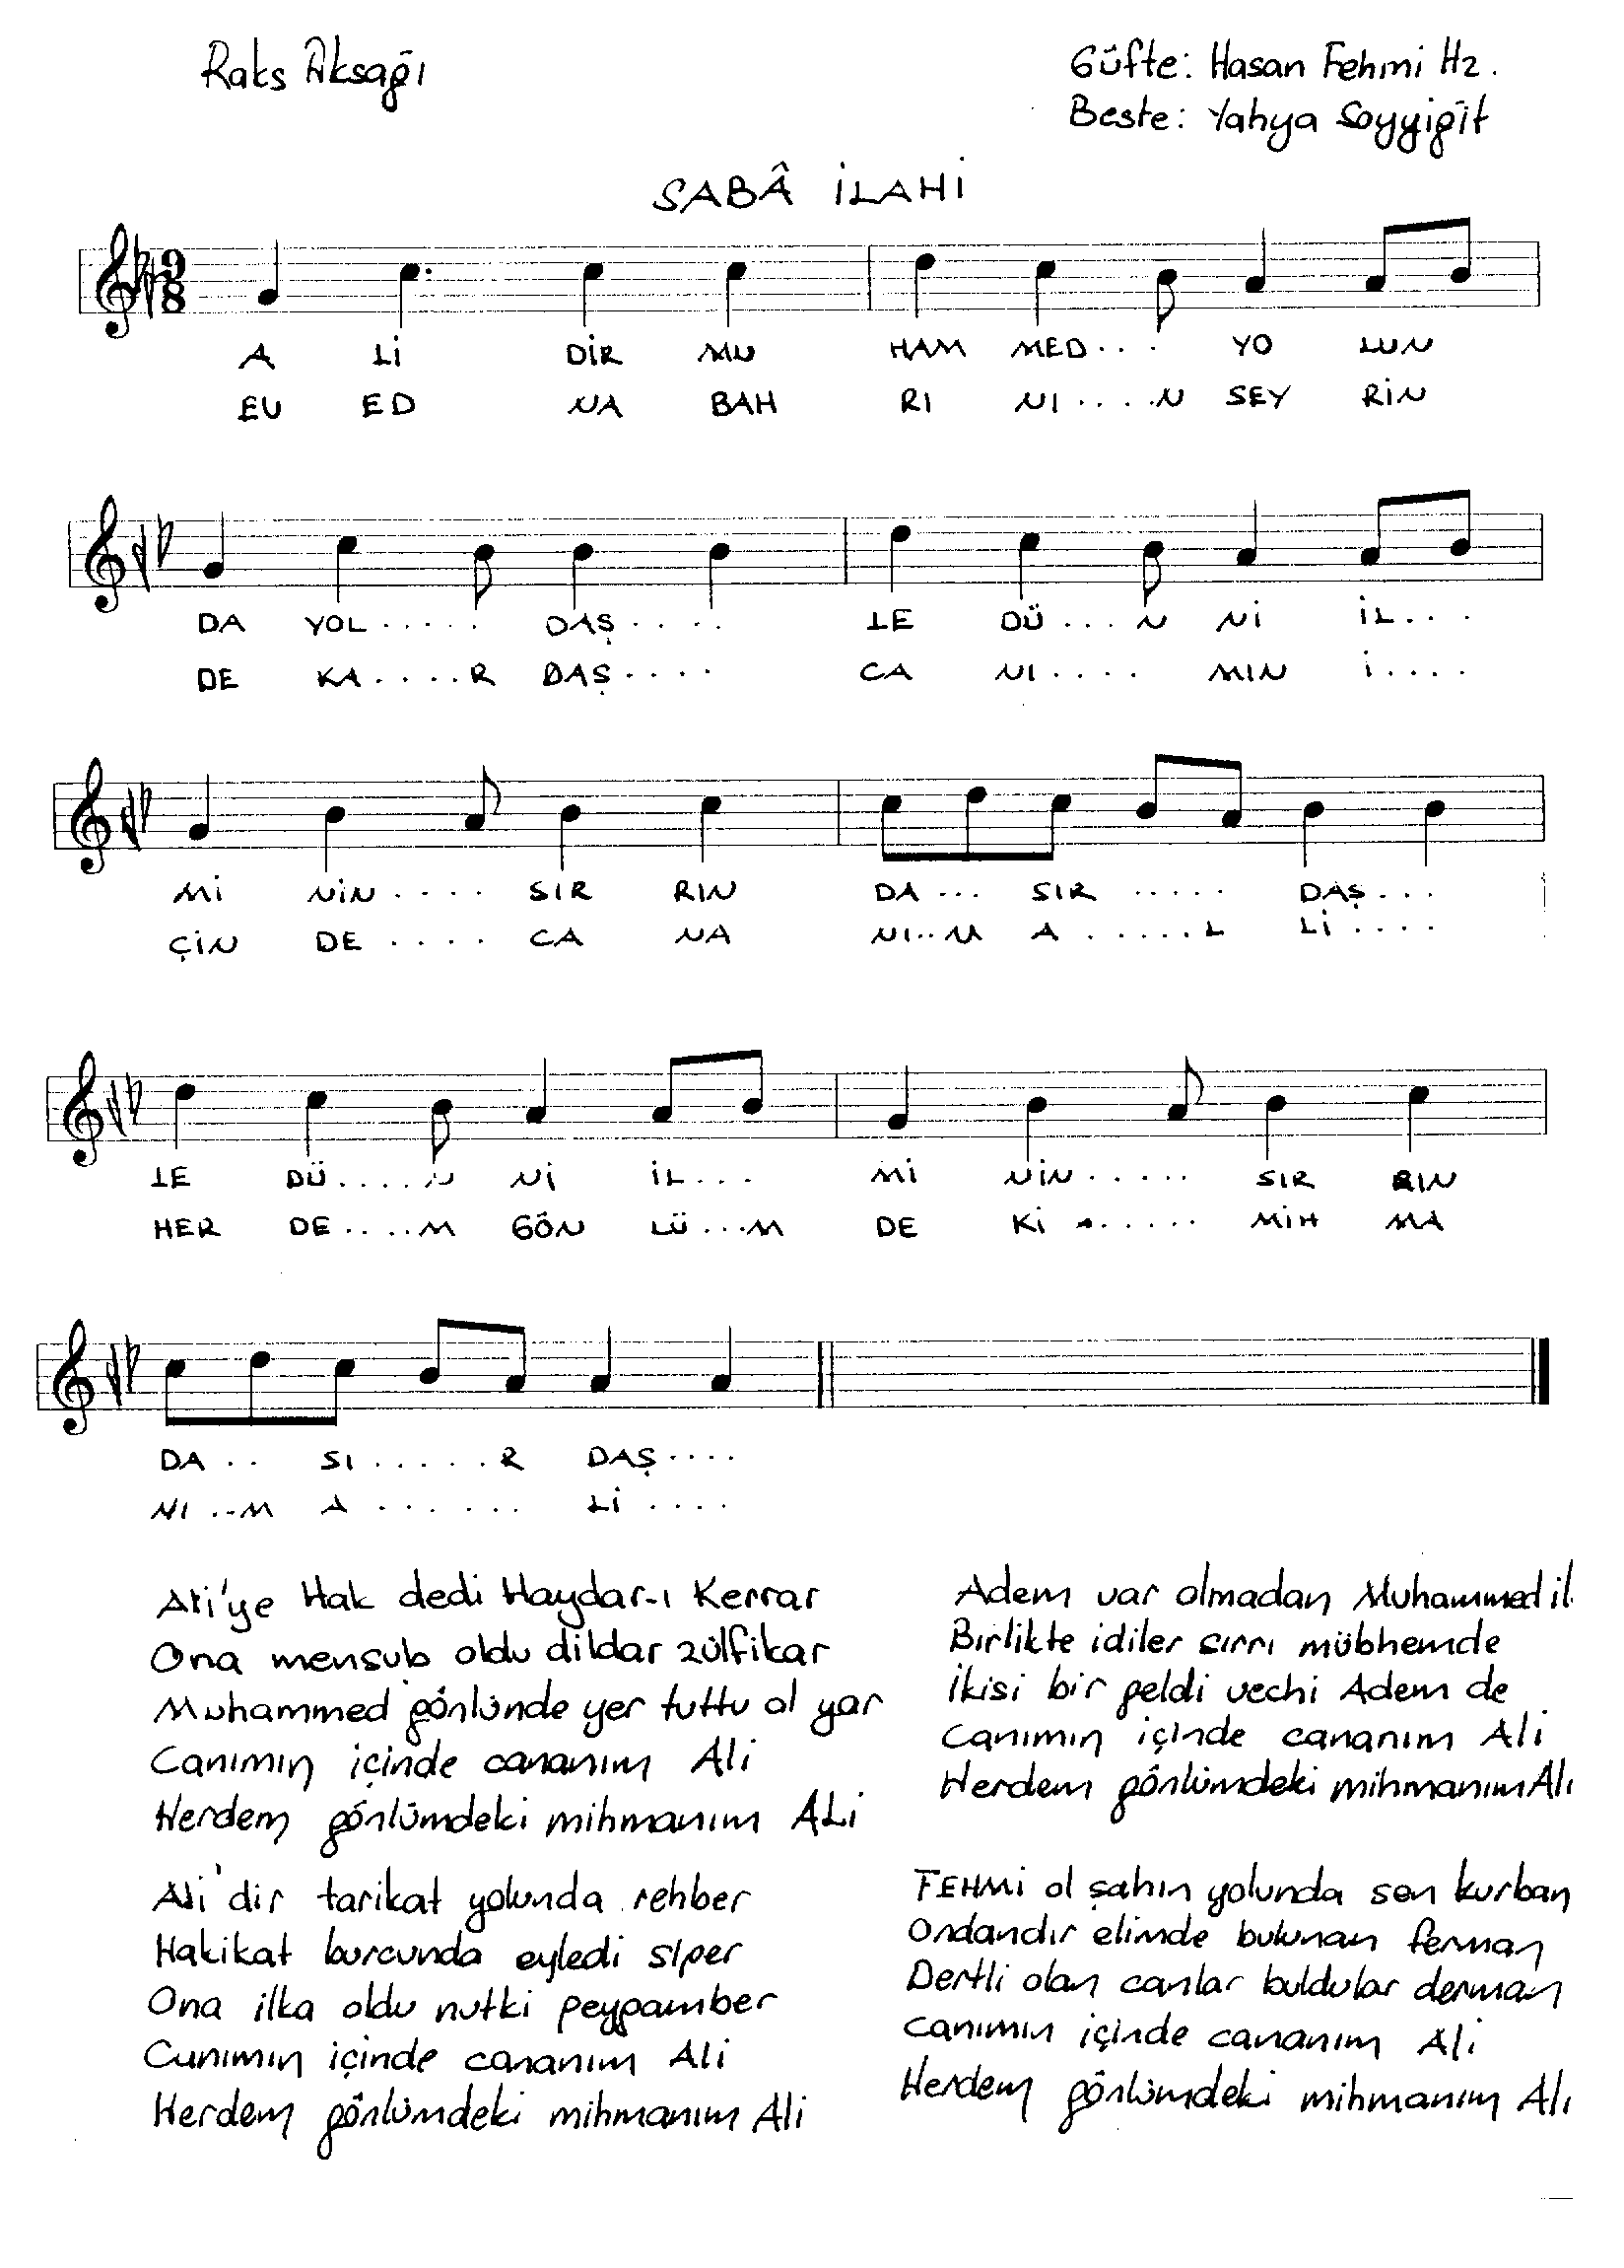 Raks Aksağı
Güfte: Hasan Fehmi Hz.
Beste: Yahya Soyyiğit
SABÂ İLAHİ
9
8
A Lİ DİR MU HAM MED... YO LUN
EV ED NA BAH RI NI....N SEY RİN
DA YOL..... DAŞ.... LE DÜ...N Nİ İL...
DE KA....R DAŞ.... CA NI.... MIN İ....
Mİ NİN.... SIR RIN DA... SIR ..... DAŞ...
ÇİN DE.... CA NA NI..M A......L Lİ....
LE DÜ....N Nİ İL... Mİ NİN..... SIR RIN
HER DE....M GÖN LÜ...M DE Kİ...... MİH MA
DA.. SI.....R DAŞ....
NI..M A....... Lİ....
Ali'ye Hak dedi Haydar-ı Kerrar
Ona mensub oldu dildar zülfikar
Muhammed gönlünde yer tuttu ol yar
Canımın içinde cananım Ali
Herdem gönlümdeki mihmanım ALİ
Ali'dir tarikat yolunda rehber
Hakikat burcunda eyledi siper
Ona ilka oldu nutki peygamber
Cunımın içinde cananım Ali
Herdem gönlümdeki mihmanım Ali
Adem var olmadan Muhammed il
Birlikte idiler sırrı mübhemde
İkisi bir geldi vechi Adem de
Canımın içinde cananım Ali
Herdem gönlümdeki mihmanım Ali
FEHMİ ol şahın yolunda sen kurban
Ondandır elimde bulunan ferman
Dertli olan canlar buldular derman
canımın içinde cananım Ali
Herdem gönlümdeki mihmanım Ali